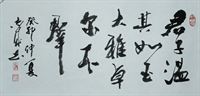 君子温
其如玉
大雅卓
尔不
群
癸卯仲夏